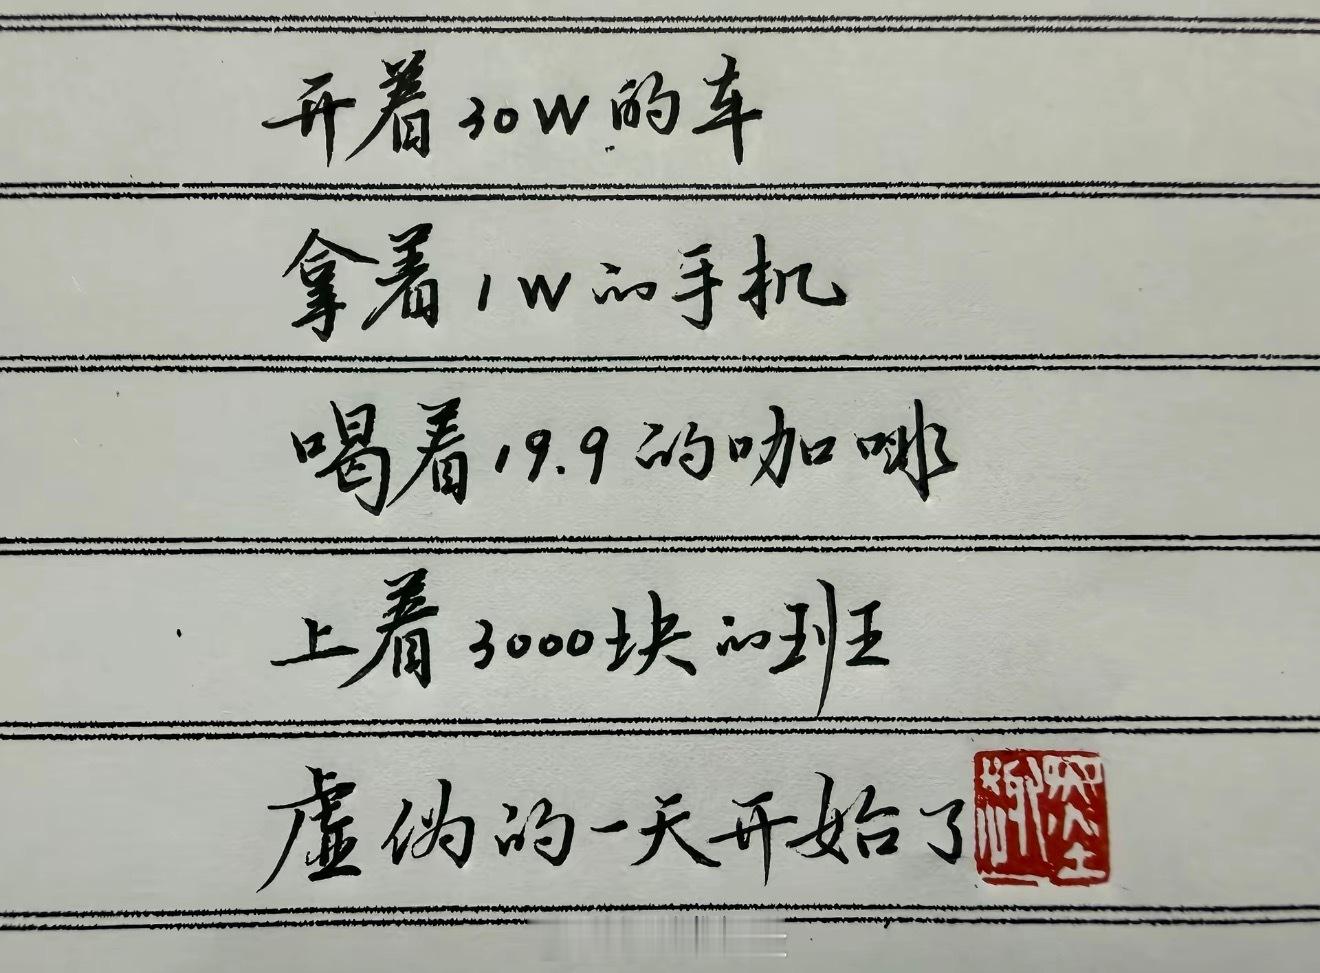 开着30W的车
拿着1W的手机
喝着19.9的咖啡
上着3000块的班
虚伪的一天开始了